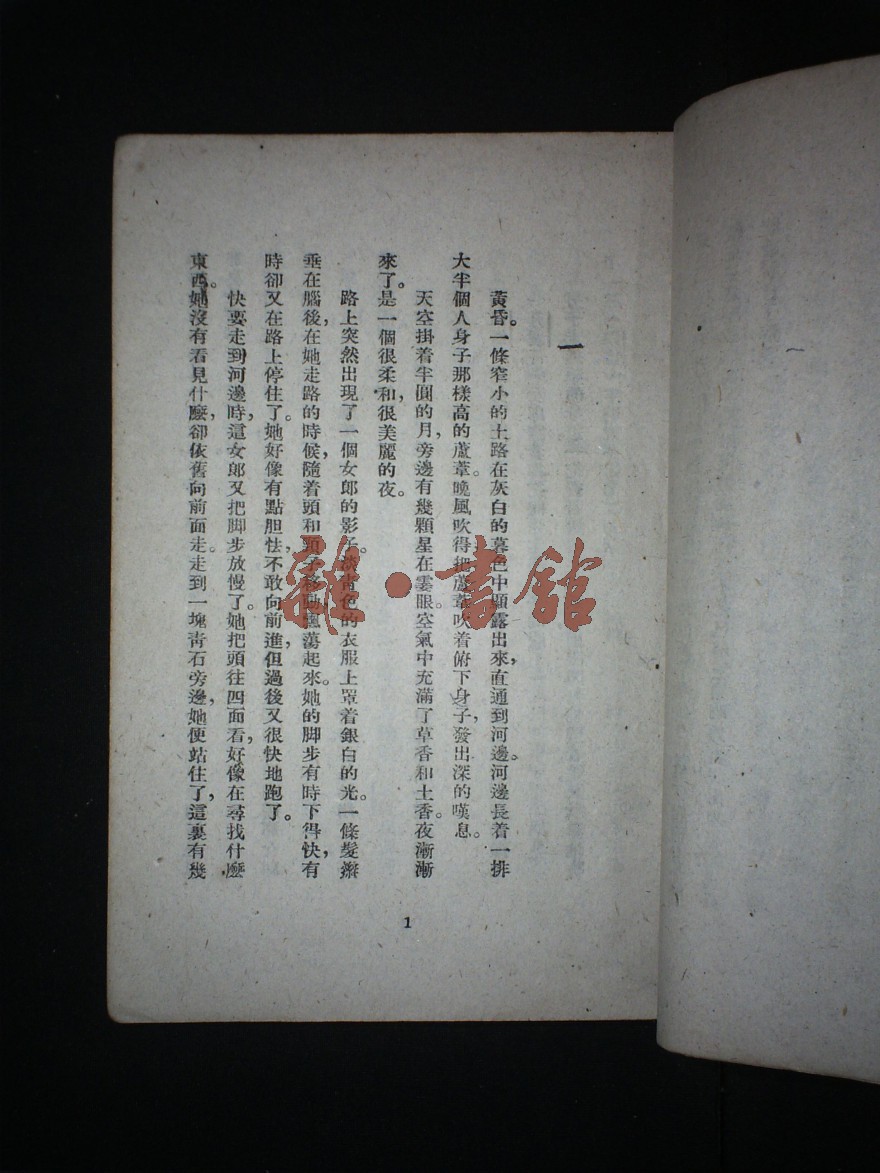 一
黃昏。一條窄小的土路在灰白的暮色中顯露出來,直通到河邊。河邊長着一排
大半個人身子那樣高的蘆葦。晚風吹得把蘆葦吹着俯下身子,發出深的嘆息。
天空掛着半圓的月,旁邊有幾顆星在霎眼。空氣中充滿了草香和土香。夜漸漸
來了。是一個很柔和,很美麗的夜。
路上突然出現了一個女郎的影子。淡青色的衣服上罩着銀白的光。一條髮辮
垂在腦後,在她走路的時候,隨着頭和頸子移動飄蕩起來。她的脚步有時下得快,有
時卻又在路上停住了。她好像有點胆怯,不敢向前進,但過後又很快地跑了。
快要走到河邊時,這女郎又把脚步放慢了。她把頭往四面看,好像在尋找什麼
東西。她沒有看見什麼,卻依舊向前面走。走到一塊靑石旁邊,她便站住了,這裏有幾
1
雜·書舘